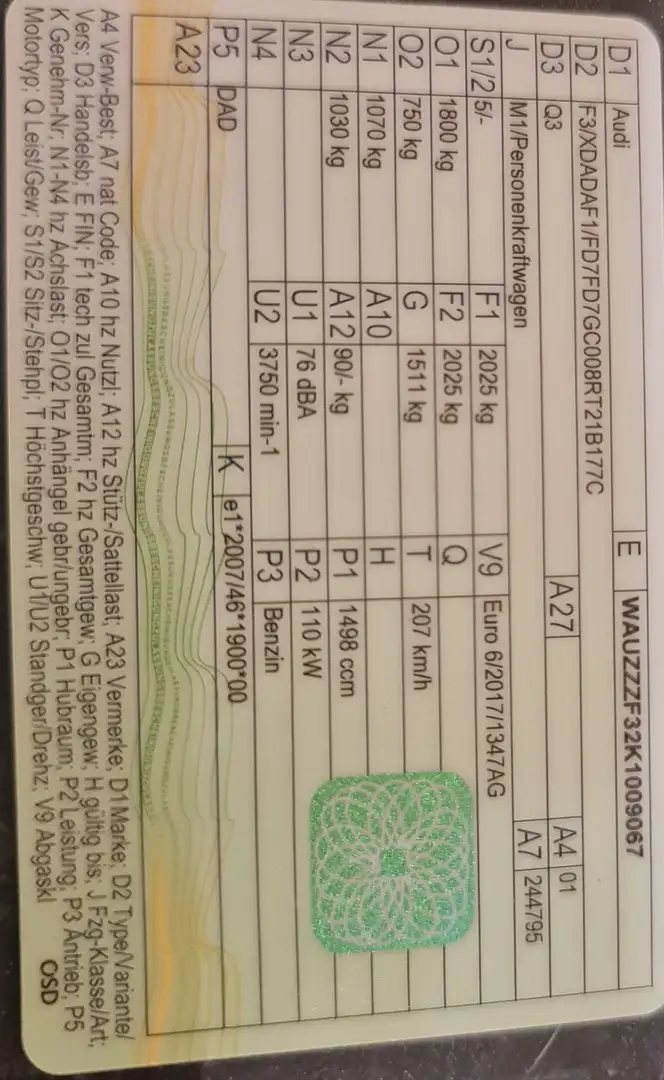 D1 Audi E WAUZZZF32K1009067
D2 F3/XDADAF1/FD7FD7GC008RT21B177C
D3 Q3 A27 A4 01
J M1/Personenkraftwagen A7 244795
S1/2 5/- F1 2025 kg V9 Euro 6/2017/1347AG
O1 1800 kg F2 2025 kg Q
O2 750 kg G 1511 kg T 207 km/h
N1 1070 kg A10 H
N2 1030 kg A12 90/- kg P1 1498 ccm
N3 U1 76 dBA P2 110 kW
N4 U2 3750 min-1 P3 Benzin
P5 DAD K e1*2007/46*1900*00
A23
A4 Verw-Best; A7 nat Code; A10 hz Nutzl; A12 hz Stütz-/Sattellast; A23 Vermerke; D1 Marke; D2 Type/Variante/
Vers; D3 Handelsb; E FIN; F1 tech zul Gesamtm; F2 hz Gesamtgew; G Eigengew; H gültig bis; J Fzg-Klasse/Art;
K Genehm-Nr; N1-N4 hz Achslast; O1/O2 hz Anhängel gebr/ungebr; P1 Hubraum; P2 Leistung; P3 Antrieb; P5
Motortyp; Q Leist/Gew; S1/S2 Sitz-/Stehpl; T Höchstgeschw; U1/U2 Standger/Drehz; V9 Abgaskl
OSD